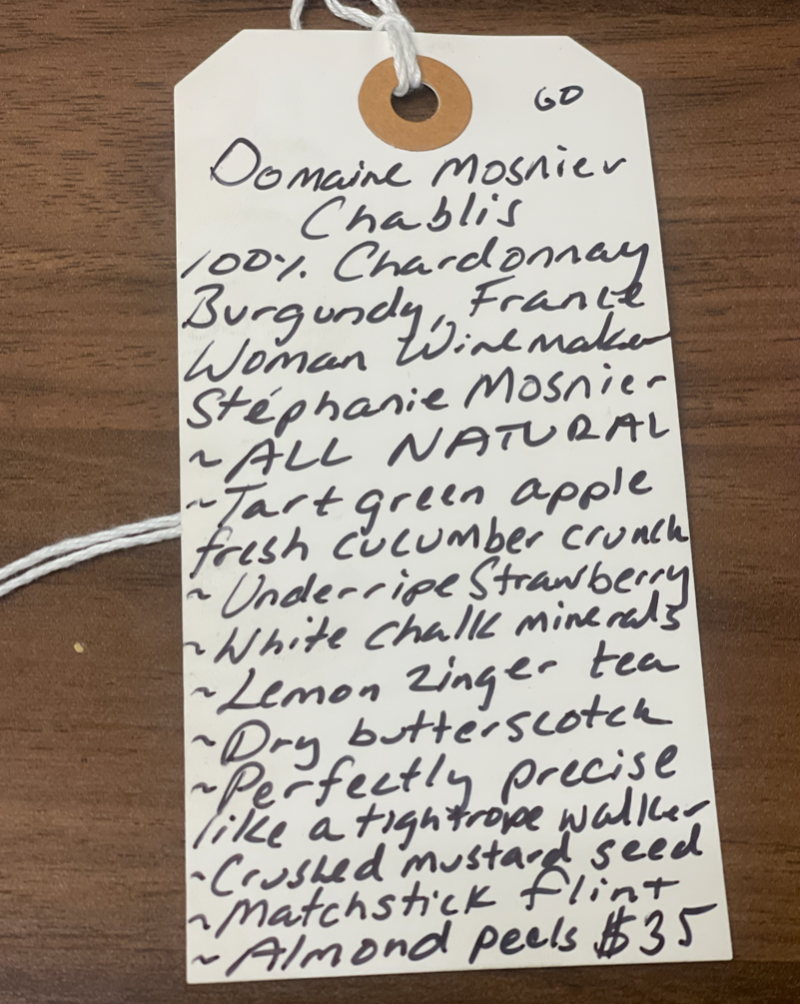 GD
Domaine Mosnier
Chablis
100% Chardonnay
Burgundy, France
Woman Winemaker
Stéphanie Mosnier
~ALL NATURAL
~Tart green apple
fresh cucumber crunch
~Underripe Strawberry
~White chalk minerals
~Lemon zinger tea
~Dry butterscotch
~Perfectly precise
like a tightrope walker
~Crushed mustard seed
~Matchstick flint
~Almond peels $35